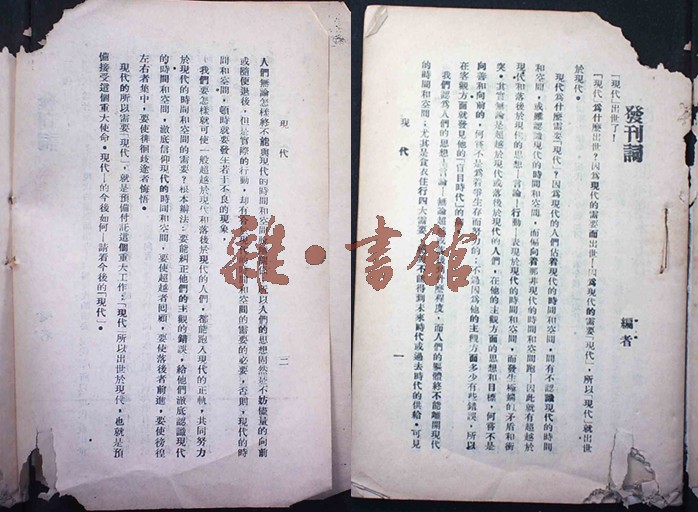 發刊詞
編者
「現代」出世了！
「現代」爲什麼出世？因爲現代的需要而出世！因爲現代的需要「現代」，所以「現代」就出世
於現代。
現代爲什麼需要「現代」？因爲現代的人們佔着現代的時間和空間，間有不認識現代的時間
和空間，或雖認識現代的時間和空間，而偏向着那非現代的時間和空間跑！因此就有超越於
現代和落後於現代的思想——言論——行動，表現於現代的時間和空間，而發生極端的矛盾和衝
突。其實無論是超越於現代或落後於現代的人們，在他的主觀方面的思想和目標，何嘗不是
向善和向前的，何嘗不是爲着學生存而努力的，不過因爲他的主觀方面多少有些錯誤，所以
在客觀方面就發見他的「盲目時代」的
我們認爲人們的思想——言論——無論超 程度，而人們的軀體終不能離開現代
的時間和空間；尤其是食衣住行四大需要， 得到未來時代或過去時代的供給。可見
現代
一
現代
二
人們無論怎樣終不能與現代的時間和空間 以人們的思想固然於不妨儘量的向前
或隨便退後，但於實際的行動，却有 空間的需要的必要，否則，現代的時
間和空間，頓時就要發生若干不良的現象。
我們要怎樣就可使一般超越於現代和落後於現代的人們，都能跑入現代的正軌，共同努力
於現代的時間和空間的需要？根本辦法：要能糾正他們的主觀的錯誤，給他們澈底認識現代
的時間和空間，澈底信仰現代的時間和空間，要使超越者回顧，要使落後者前進，要使徬徨
左右者集中，要使徘徊歧途者悔悟。
現代的所以需要「現代」，就是預備付託這個重大工作：「現代」所以出世於現代，也就是預
備接受這個重大使命。「現代」的今後如何——請看今後的「現代」。
雜·書館